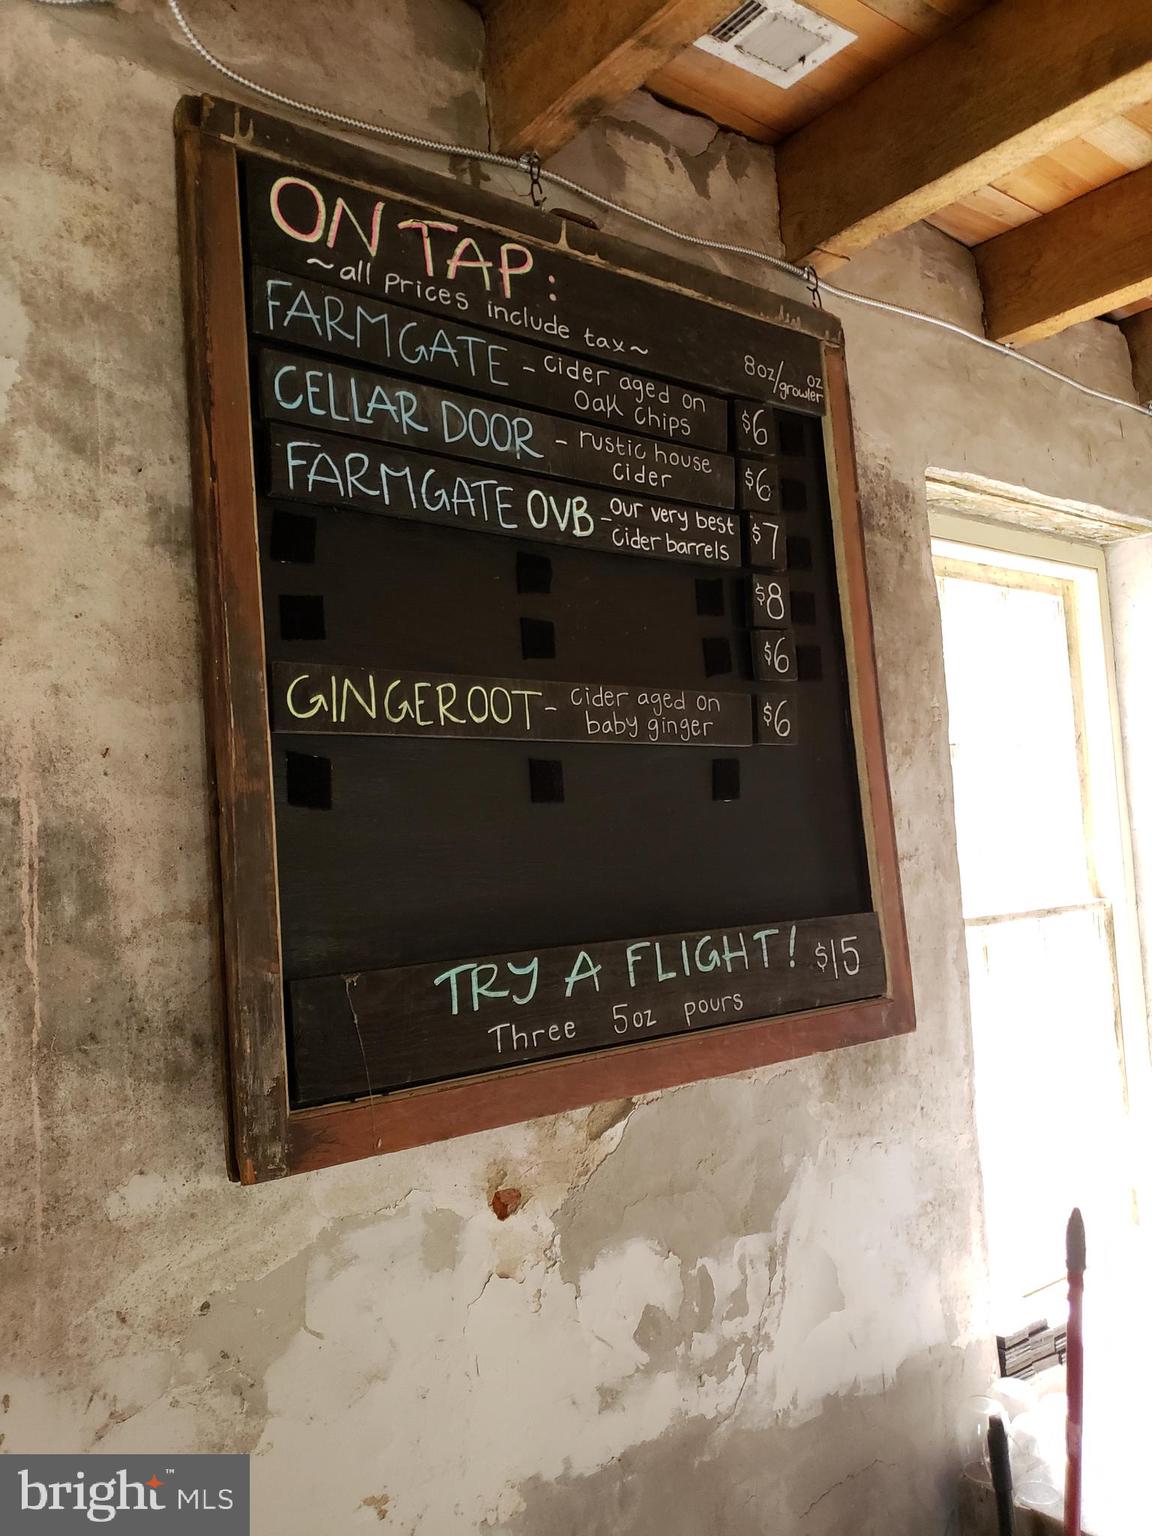 ON TAP:
~all prices include tax~
8oz/growler oz
FARMGATE - cider aged on
Oak Chips
$6
CELLAR DOOR - rustic house
cider
$6
FARMGATE OVB - our very best
cider barrels
$7
$8
$6
GINGEROOT - cider aged on
baby ginger
$6
TRY A FLIGHT! $15
Three 5oz pours
bright™ MLS